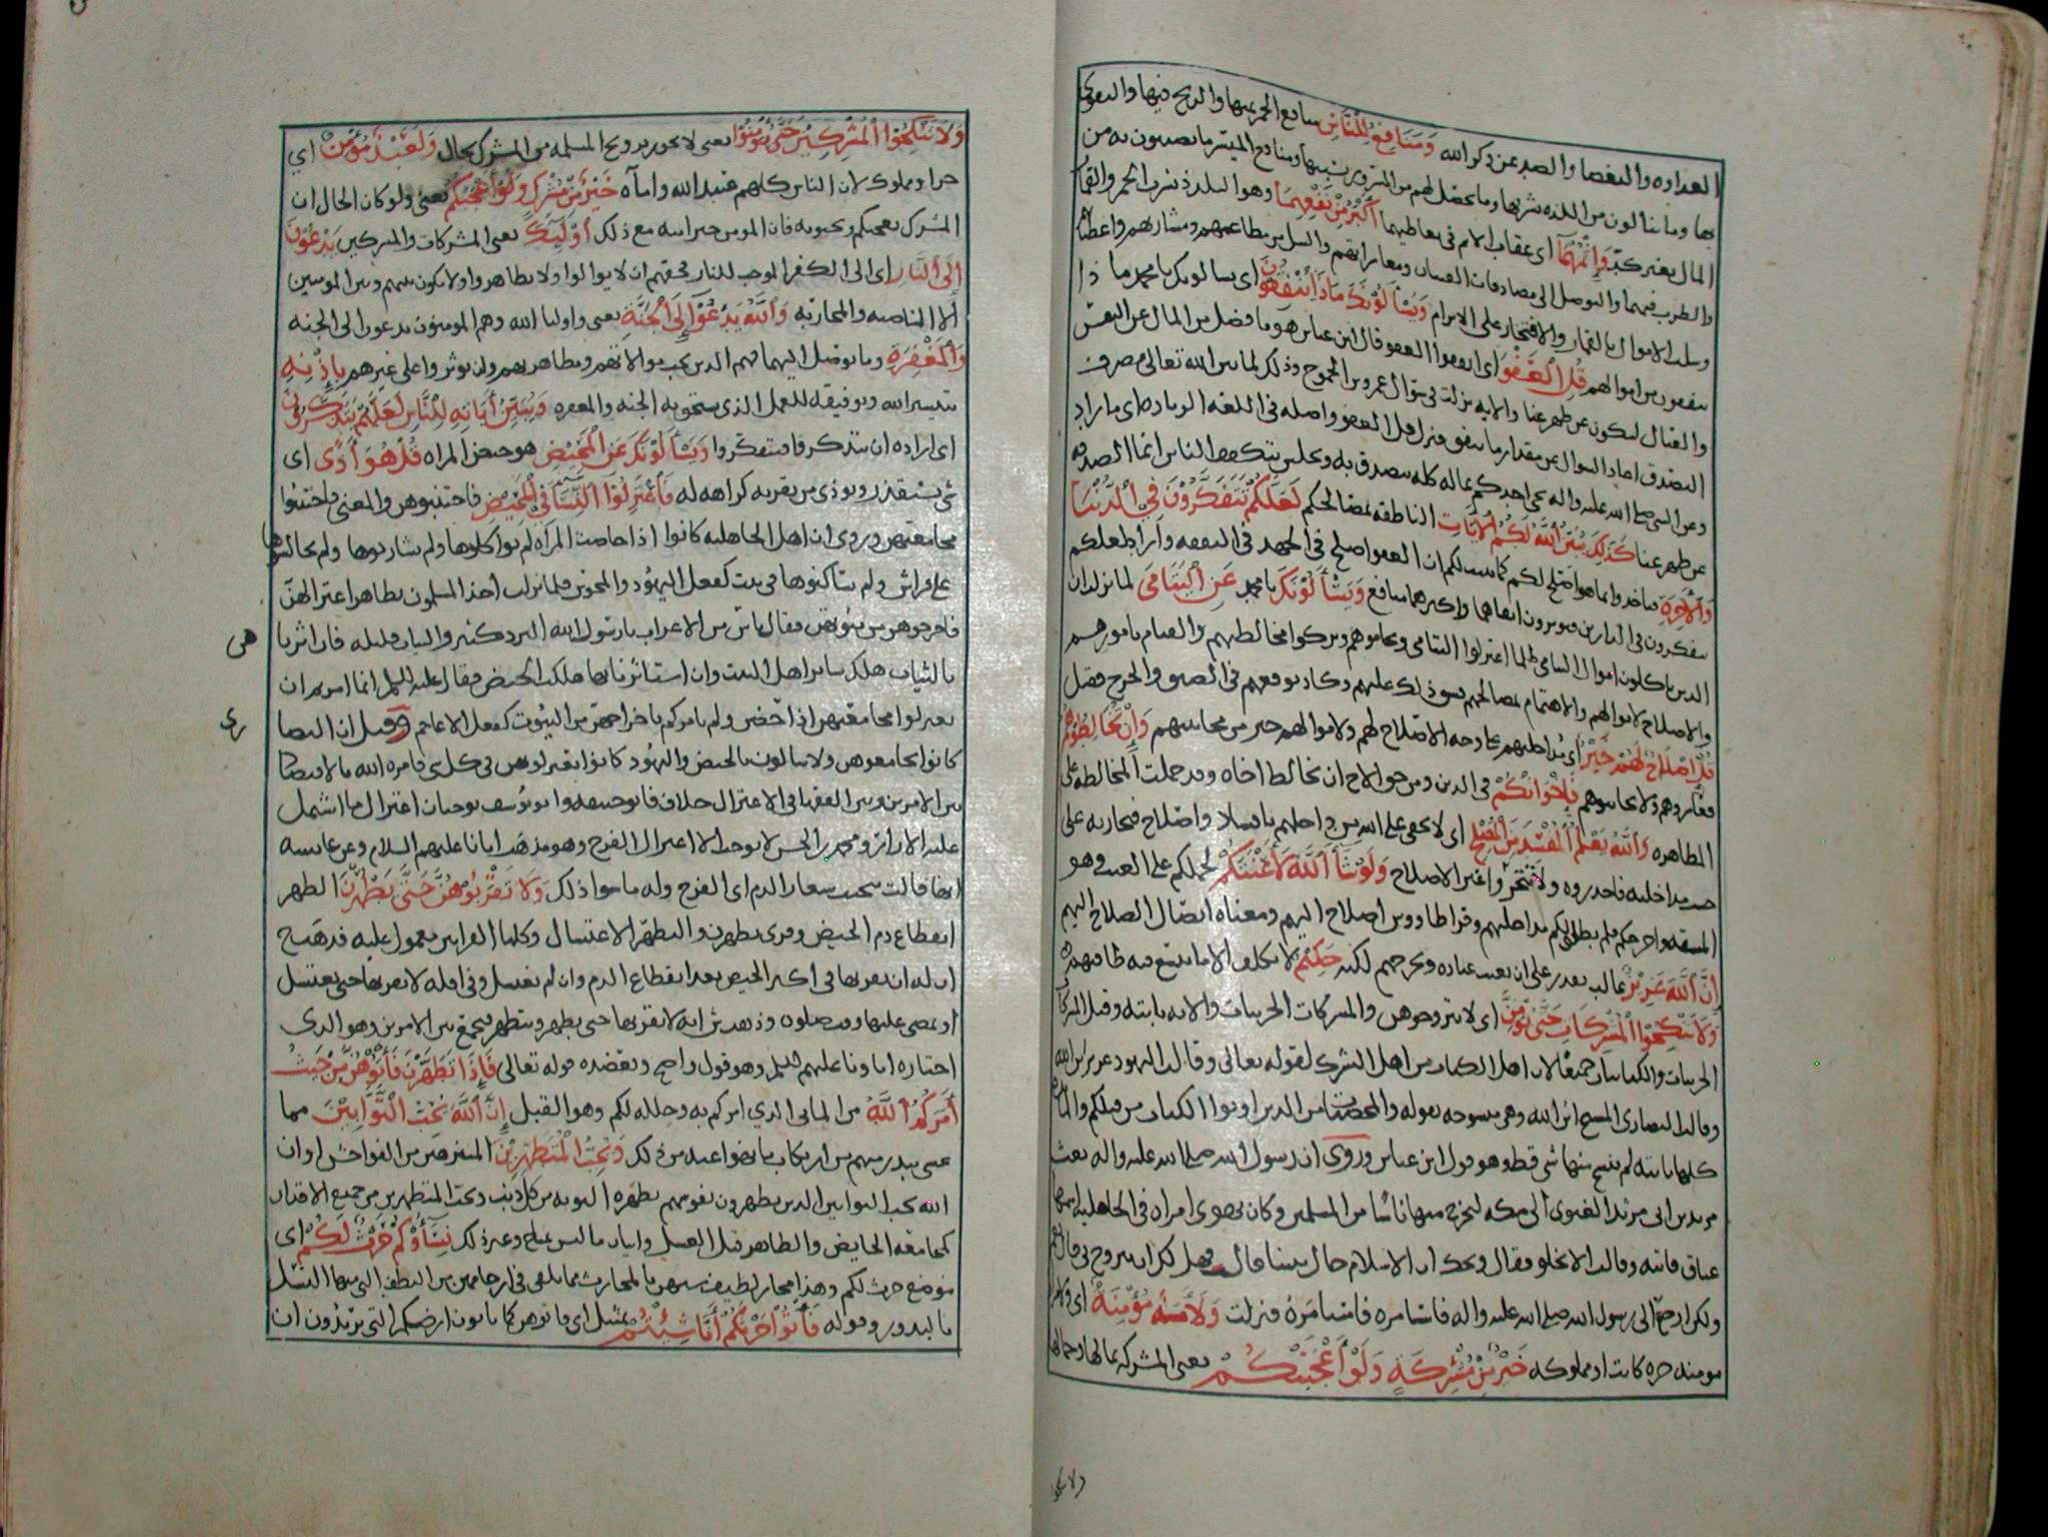 العداوه والبغضا والصد عن ذكر الله وَمَنَافِعُ لِلنَّاسِ منافع الخمر بيعها والربح فيها والتقوي
بها وما ينالون من اللذه بشربها وما يحصل لهم من السرور بسببها ومنافع الميسر ما يصيبون به من
المال بغير كدّ وَإِثْمُهُمَا اى عقاب الاثم في تعاطيهما أَكْبَرُ مِنْ نَفْعِهِمَا وهو التلذذ بشرب الخمر والقمار
والطرب فيهما والتوصل الى مصادقات الفتيان ومعاشراتهم والنيل من مطاعمهم ومشاربهم واعطياتهم
وسلب الاموال بالقمار والافتخار على الابرام وَيَسْأَلُوْنَكَ مَاذَا يُنْفِقُوْنَ اى يسالونك يا محمد ما ذا
ينفقون من اموالهم قُلِ الْعَفْوَ اى انفقوا العفو قال ابن عباس هو ما فضل من المال عن النفس
والعيال ليكون عن ظهر غنا والايه نزلت في سؤال عمرو بن الجموح وذلك لما بين الله تعالى مصرف
التصدق اعاد السوال عن مقدار ما ينفق فنزل قل العفو واصله في اللغه الزياده اى ما زاد
وعن النبى صلى الله عليه واله يجى احدكم بماله كله يتصدق به ويجلس يتكفف الناس انما الصدقه
عن ظهر غنا كَذَلِكَ يُبَيِّنُ اللَّهُ لَكُمُ الْآيَاتِ الناطقه بمصالحكم لَعَلَّكُمْ تَتَفَكَّرُوْنَ فِي الدُّنْيَا
وَالْآخِرَةِ فتاخذوا بما هو اصلح لكم كما بينا لكم ان العفو اصلح في الجهد في النفقه واراد لعلكم
تتفكرون في الدارين فتوثرون ابقاهما واكثرهما منافع وَيَسْأَلُوْنَكَ يا محمد عَنِ الْيَتَامَى لما نزل ان
الذين ياكلون اموال اليتامى ظلما اعتزلوا اليتامى وتحاموهم وتركوا مخالطتهم والقيام بامورهم
والاصلاح لاموالهم والاهتمام بمصالحهم فشق ذلك عليهم وكاد يوقعهم في الضيق والحرج فقيل
قُلْ إِصْلَاحٌ لَهُمْ خَيْرٌ اى مداخلتهم على وجه الاصلاح لهم ولاموالهم خير من مجانبتهم وَإِنْ تُخَالِطُوْهُمْ
فعاشروهم ولا تجانبوهم فَإِخْوَانُكُمْ في الدين ومن حق الاخ ان يخالط اخاه وقد حملت المخالطه على
المظاهره وَاللَّهُ يَعْلَمُ الْمُفْسِدَ مِنَ الْمُصْلِحِ اى لا يخفى على الله من داخلهم بافساد واصلاح فيجازيه على
حسب مداخلته فاحذروه ولا تتحرّوا غير الاصلاح وَلَوْ شَاءَ اللَّهُ لَأَعْنَتَكُمْ لحملكم على العنت وهو
المشقه واحرجكم فلم يطلق لكم مداخلتهم وقرا طاووس اصلاح اليهم ومعناه ايصال الصلاح اليهم
إِنَّ اللَّهَ عَزِيْزٌ غالب يقدر على ان يعنت عباده ويحرجهم لكنه حَكِيْمٌ لا يكلف الا ما يتسع فيه طاقتهم
وَلَا تَنْكِحُوا الْمُشْرِكَاتِ حَتَّى يُؤْمِنَّ اى لا تتزوجوهن والمشركات الحربيات والايه ثابته وقيل المشركات
الحربيات والكتابيات جميعًا لان اهل الكتاب من اهل الشرك لقوله تعالى وقالت اليهود عزير ابن الله
وقالت النصارى المسيح ابن الله وهى منسوخه بقوله والمحصنات من الذين اوتوا الكتاب من قبلكم والمائده
كلها ثابته لم ينسخ منها شى قط وهو قول ابن عباس وروى ان رسول الله صلى الله عليه واله بعث
مرثد بن ابى مرثد الغنوى الى مكه ليخرج منها ناسًا من المسلمين وكان يهوى امراه في الجاهليه اسمها
عناق فاتته وقالت الا نخلو فقال ويحك ان الاسلام حال بيننا قالت فهل لك ان تتزوج بى قال نعم
ولكن ارجع الى رسول الله صلى الله عليه واله فاستامره فاستامره فنزلت وَلَأَمَةٌ مُؤْمِنَةٌ اى ولامراه
مومنه حره كانت او مملوكه خَيْرٌ مِنْ مُشْرِكَةٍ وَلَوْ أَعْجَبَتْكُمْ يعنى المشركه بمالها وجمالها
ولا تنكحوا
وَلَا تُنْكِحُوا الْمُشْرِكِيْنَ حَتَّى يُؤْمِنُوْا يعنى لا يجوز تزويج المسلمه من المشرك بحال وَلَعَبْدٌ مُؤْمِنٌ اى
حرا ومملوك لان الناس كلهم عبيد الله واماه خَيْرٌ مِنْ مُشْرِكٍ وَلَوْ أَعْجَبَكُمْ يعنى ولو كان الحال ان
المشرك يعجبكم وتحبونه فان المومن خير منه مع ذلك أُوْلَئِكَ يعنى المشركات والمشركين يَدْعُوْنَ
إِلَى النَّارِ اى الى الكفر الموجب للنار فحقهم ان لا يوالوا ولا يظاهروا ولا يكون بينهم وبين المومنين
الا المناصبه والمحاربه وَاللَّهُ يَدْعُوْا إِلَى الْجَنَّةِ يعنى واوليا الله وهم المومنون يدعون الى الجنه
وَالْمَغْفِرَةِ وما يوصل اليهما فهم الذين تجب موالاتهم ومظاهرتهم وان يوثروا على غيرهم بِإِذْنِهِ
بتيسير الله وتوفيقه للعمل الذى يستحق به الجنه والمغفره وَيُبَيِّنُ آيَاتِهِ لِلنَّاسِ لَعَلَّهُمْ يَتَذَكَّرُوْنَ
اى اراده ان يتذكر قاميتفكروا وَيَسْأَلُوْنَكَ عَنِ الْمَحِيْضِ هو حيض المراه قُلْ هُوَ أَذًى اى
شى يستقذر ويوذى من يقربه كراهه له فَاعْتَزِلُوا النِّسَاءَ فِي الْمَحِيْضِ فاجتنبوهن والمعنى فاجتنبوا
مجامعتهن وروى ان اهل الجاهليه كانوا اذا حاضت المراه لم يواكلوها ولم يشاربوها ولم يجالسوها
على فراش ولم يساكنوها في بيت كفعل اليهود والمجوس فلما نزلت اخذ المسلمون بظاهر اعتزالهنّ
فاخرجوهن من بيوتهن فقال ناس من الاعراب يا رسول الله البرد كثير والثياب قليله فان اثرنا
هى
بالثياب هلك ساير اهل البيت وان استاثرنا بها هلكت الحيض فقال عليه السلم انما امرتم ان
تعتزلوا مجامعتهن اذا حضن ولم يامركم باخراجهن من البيوت كفعل الاعاجم وقيل ان النصا
رى
كانوا يجامعوهن ولا يبالون بالحيض واليهود كانوا يعتزلونهن في كل شى فامره الله بالاقتصاد
بين الامرين وبين الفقها في الاعتزال خلاف فابو حنيفه وابو يوسف يوجبان اعتزال ما اشتمل
عليه الازار ومحمد بن الحسن لا يوجب الا اعتزال الفرج وهو مذهب ابانا عليهم السلام وعن عايشه
انها قالت يجتنب شعار الدم اى الفرج وله ما سوا ذلك وَلَا تَقْرَبُوْهُنَّ حَتَّى يَطْهُرْنَ الطهر
انقطاع دم الحيض وقرى يطهرن والتطهر الاغتسال وكلتا القرايتين معمول عليه فذهب ح
ان له ان يقربها في اكثر الحيض بعد انقطاع الدم وان لم تغتسل وفي اقله لا يقربها حتى تغتسل
او يمضى عليها وقت صلوه وذهب ش انه لا يقربها حتى تطهر وتتطهر فيجمع بين الامرين وهو الذى
اختاره اباونا عليهم السلم وهو قول واضح ويعضده قوله تعالى فَإِذَا تَطَهَّرْنَ فَأْتُوْهُنَّ مِنْ حَيْثُ
أَمَرَكُمُ اللَّهُ من الماتى الذي امركم به وحلله لكم وهو القبل إِنَّ اللَّهَ يُحِبُّ التَّوَّابِيْنَ مما
عسى يبدر منهم من ارتكاب ما نهوا عنه من ذلك وَيُحِبُّ الْمُتَطَهِّرِيْنَ المتنزهين من الفواحش او ان
الله يحب التوابين الذين يطهرون نفوسهم بطهره التوبه من كل ذنب ويحب المتطهرين من جميع الاقذار
كمجامعه الحايض والطاهر قبل الغسل واتيان ما ليس بمباح وغير ذلك نِسَاؤُكُمْ حَرْثٌ لَكُمْ اى
موضع حرث لكم وهذا مجاز لطيف شبههن بالمحارث مما يلقى في ارحامهن من النطف التى منها النسل
بالبذور وقوله فَأْتُوْا حَرْثَكُمْ أَنَّى شِئْتُمْ تمثيل اى فاتوهن كما تاتون ارضكم التى تريدون ان